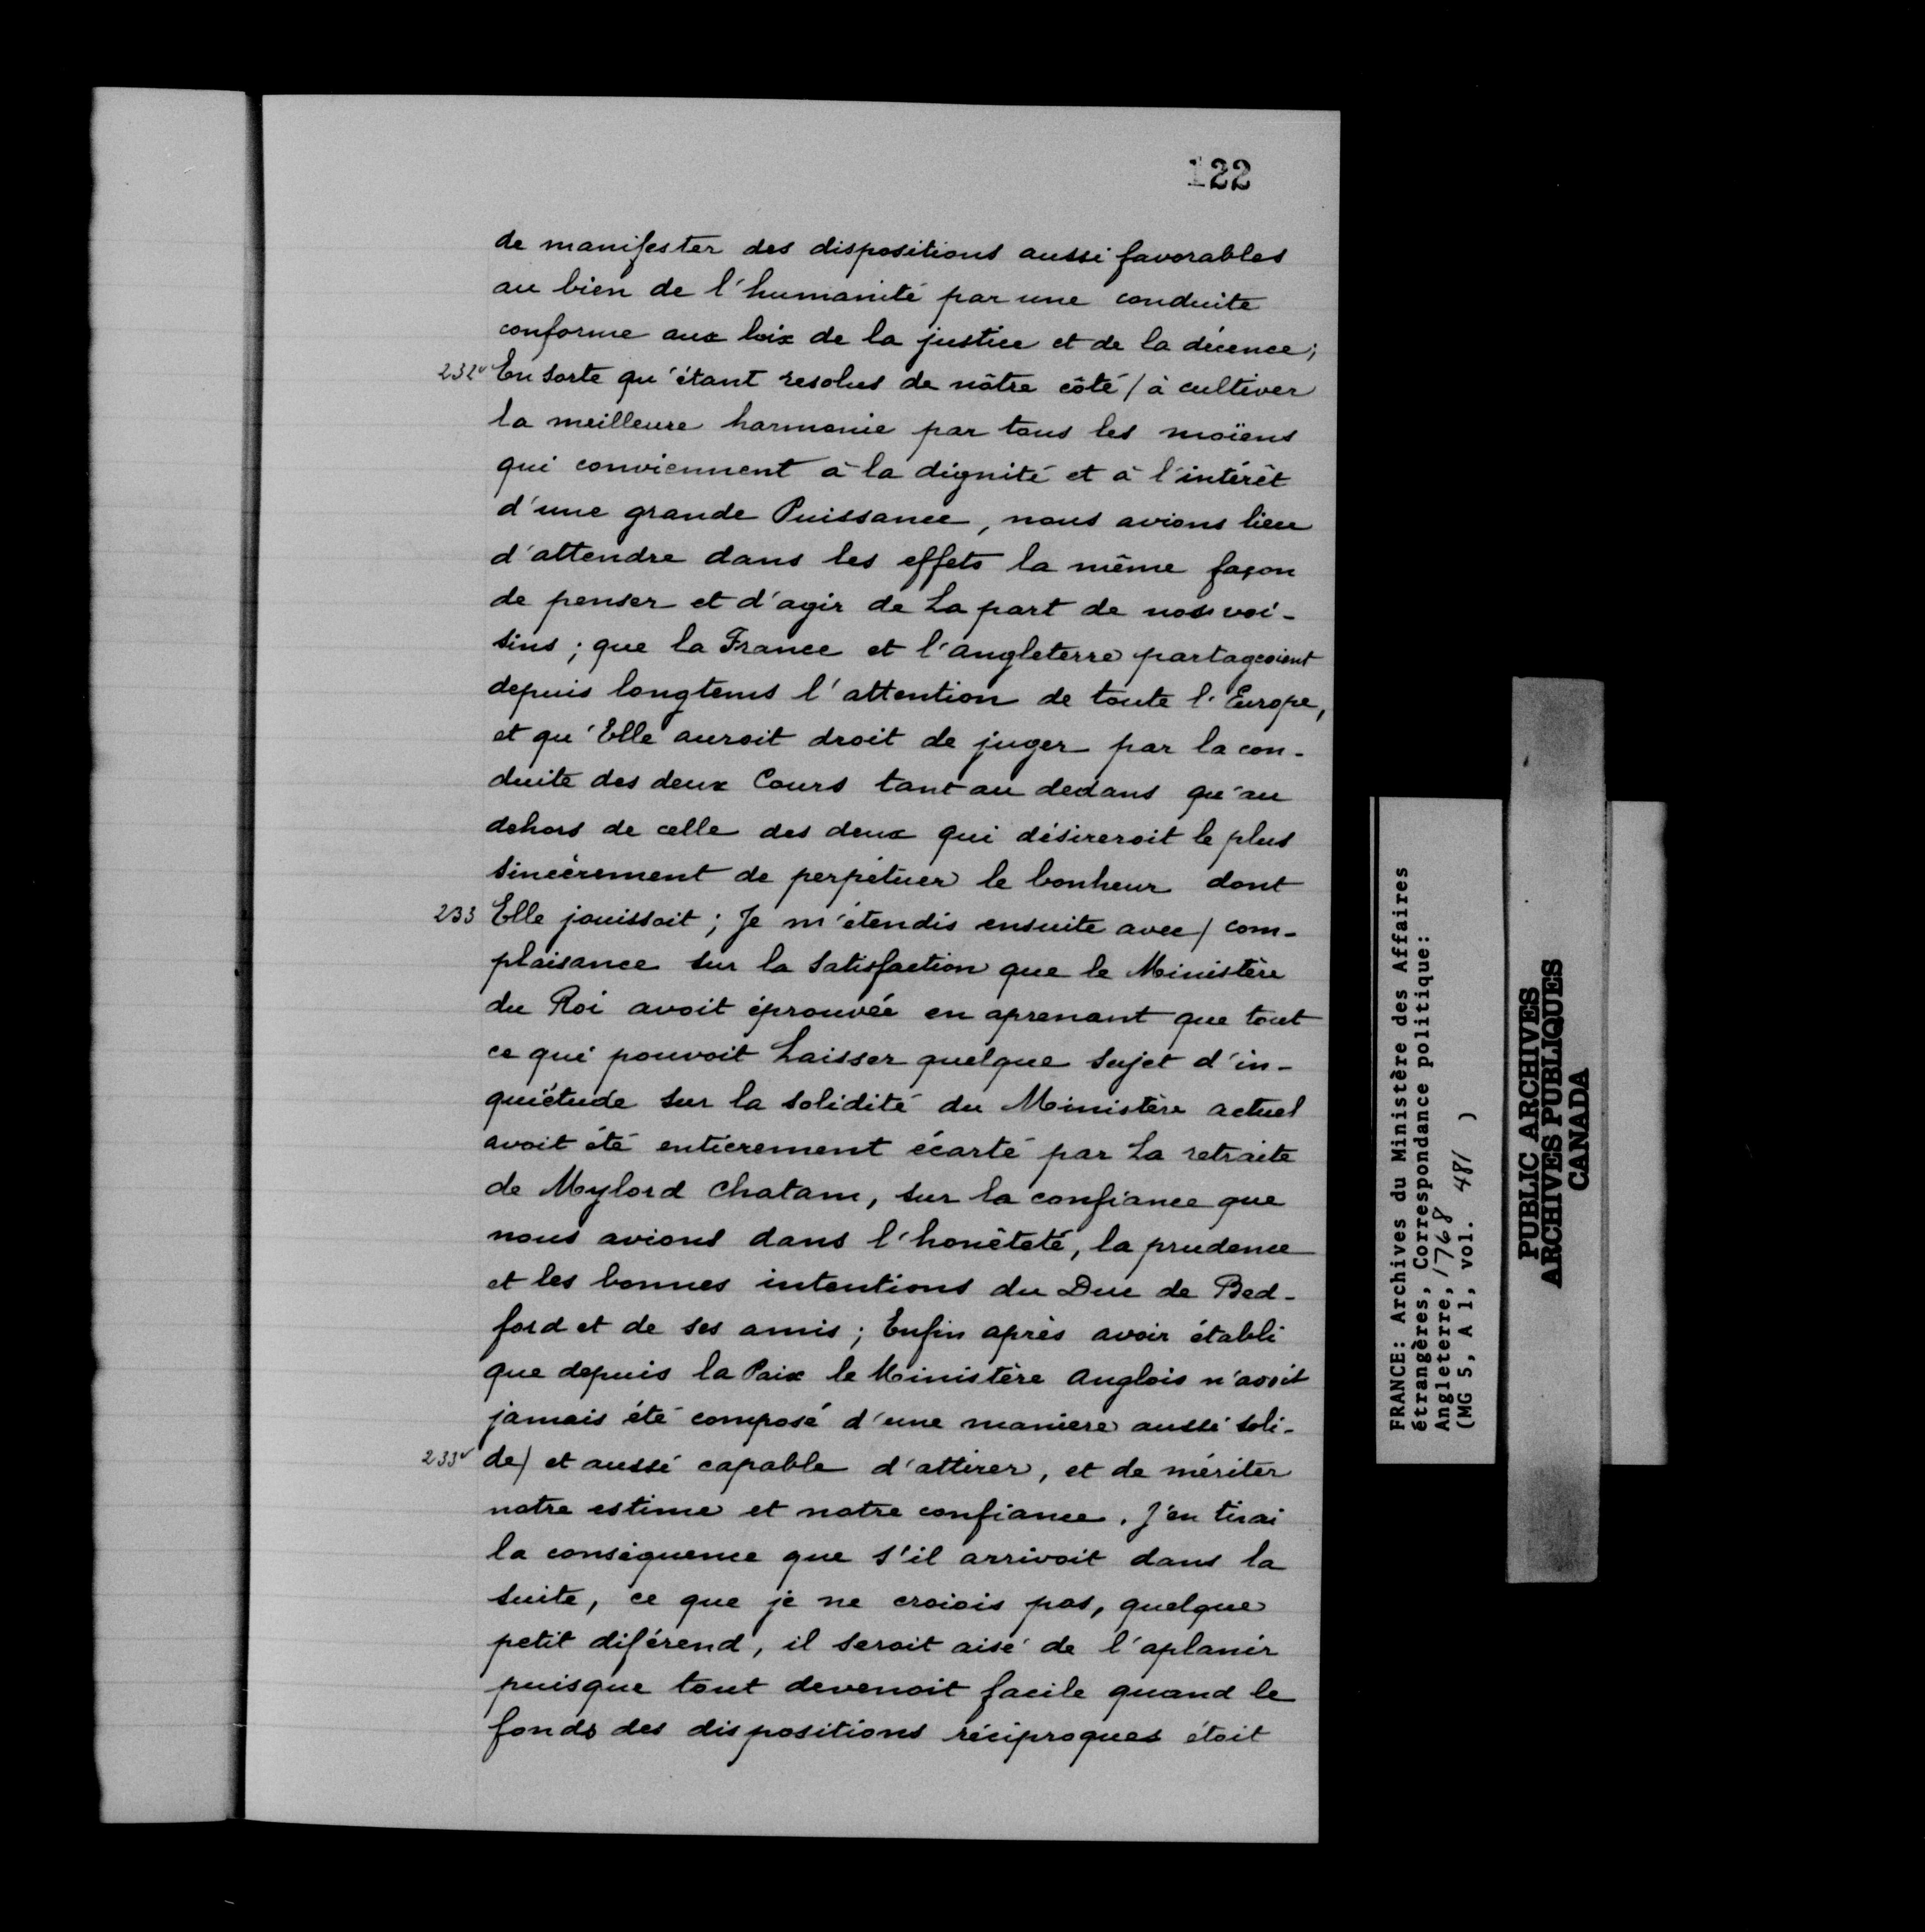 122
de manifester des dispositions aussi favorables
au bien de l'humanité par une conduite
conforme aux loix de la justice et de la décence;
232v En sorte qu'étant resolus de nôtre côté / à cultiver
la meilleure harmonie par tous les moïens
qui conviennent à la dignité et à l'intérêt
d'une grande Puissance, nous avions lieu
d'attendre dans les effets la même façon
de penser et d'agir de La part de nos voi-
sins; que la France et l'angleterre partageoient
depuis longtems l'attention de toute l'Europe,
et qu'Elle auroit droit de juger par la con-
duite des deux Cours tant au dedans qu'au
dehors de celle des deux qui désireroit le plus
sincèrement de perpétuer le bonheur dont
233 Elle jouissoit; Je m'étendis ensuite avec / com-
plaisance sur la Satisfaction que le Ministère
du Roi avoit éprouvée en aprenant que tout
ce qui pouvoit Laisser quelque sujet d'in-
quiétude sur la solidité du Ministère actuel
avoit été entièrement écarté par La retraite
de Mylord Chatam, sur la confiance que
nous avions dans l'honêteté, la prudence
et les bonnes intentions du Duc de Bed-
ford et de ses amis; Enfin après avoir établi
que depuis la Paix le Ministère anglois n'avoit
jamais été composé d'une maniere aussi soli-
233v de / et aussi capable d'attirer, et de mériter
notre estime et notre confiance. J'en tirai
la conséquence que s'il arrivoit dans la
suite, ce que je ne croiois pas, quelque
petit diférend, il seroit aisé de l'aplanir
puisque tout devenoit facile quand le
fonds des dispositions réciproques étoit
FRANCE: Archives du Ministère des Affaires
étrangères, Correspondance politique:
Angleterre, 1768
(MG 5, A 1, vol. 481 )
PUBLIC ARCHIVES
ARCHIVES PUBLIQUES
CANADA